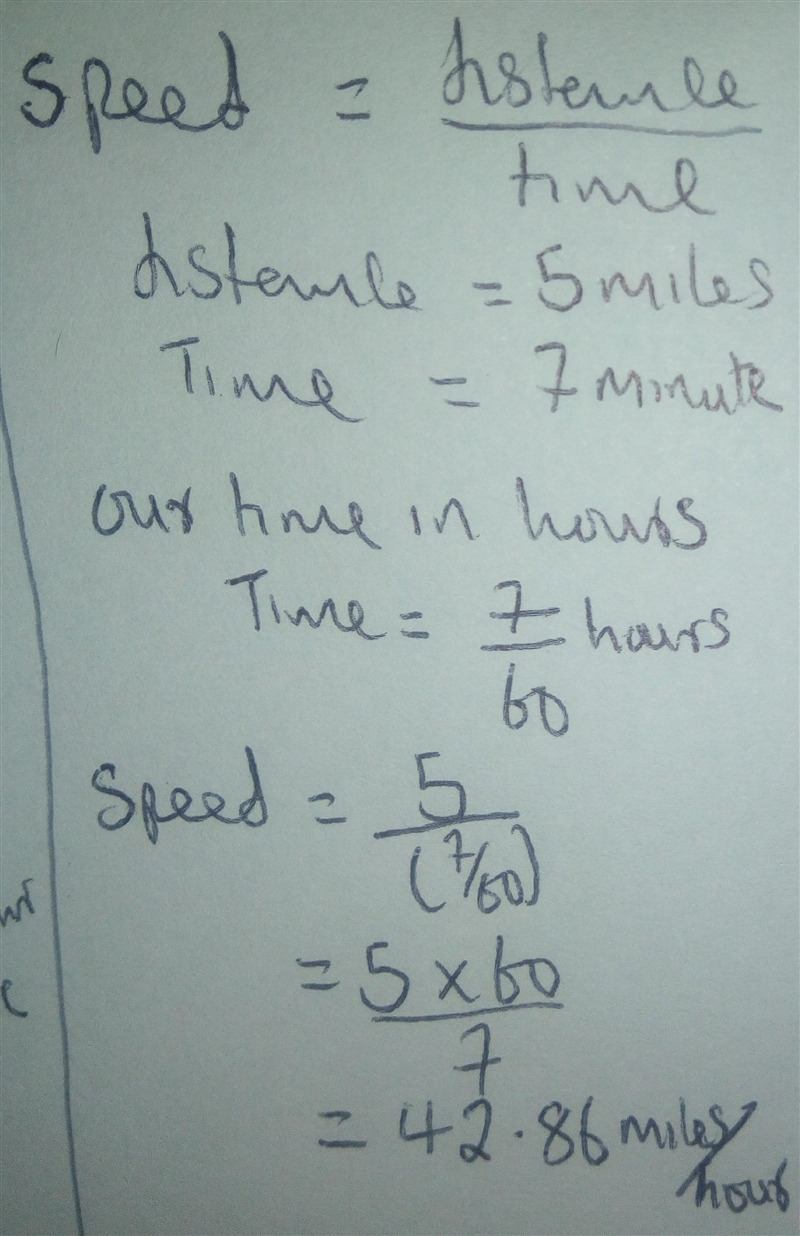 Speed = distance
time
distance = 5 miles
Time = 7 minute
our time in hours
Time = 7 hours
60
Speed = 5
(7/60)
= 5 x 60
7
= 42.86 miles/
hour